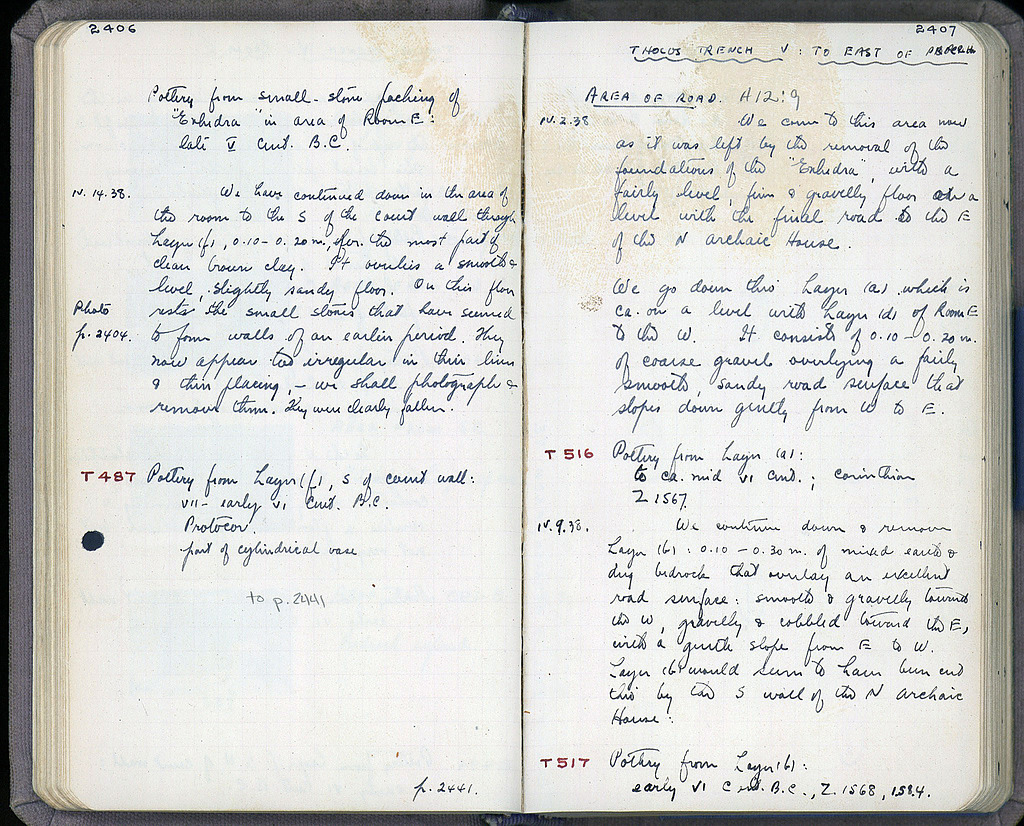 2406
Pottery from small-stone packing of
"Exhedra" in area of Room E:
late V cent. B.C.
IV.14.38. We have continued down in the area of
the room to the S of the court wall through
Layer (f), 0.10-0.20 m, for the most part of
clean brown clay. It overlies a smooth &
level, slightly sandy floor. On this floor
Photo rests the small stones that have seemed
p. 2404. to form walls of an earlier period. They
now appear too irregular in their lines
& their placing, - we shall photograph &
remove them. They were clearly fallen.
T 487 Pottery from Layer (f), S of court wall:
VII - early VI cent. B.C.
Protocor.
part of cylindrical vase
to p. 2441
p. 2441.
2407
THOLOS TRENCH V: TO EAST OF
AREA OF ROAD. H12:9
IV.2.38 We come to this area now
as it was left by the removal of the
foundations of the "Exhedra", with a
fairly level, firm & gravelly floor on a
level with the final road to the E
of the N archaic House.
We go down thro' Layer (a) which is
ca. on a level with Layer (d) of Room E
to the W. It consists of 0.10-0.20 m.
of coarse gravel overlying a fairly
smooth, sandy road surface that
slopes down gently from W to E.
T 516 Pottery from Layer (a):
to ca. mid VI cent.; Corinthian
Z 1567.
IV.9.38. We continue down & remove
Layer (b): 0.10-0.30 m. of mixed earth &
dug bedrock that overlay an excellent
road surface: smooth & gravelly toward
the W, gravelly & cobbled toward the E,
with a gentle slope from E to W.
Layer (b) would seem to have been cut
thro' by the S wall of the N archaic
House.
T 517 Pottery from Layer (b):
early VI cent. B.C., Z. 1568, 1584.